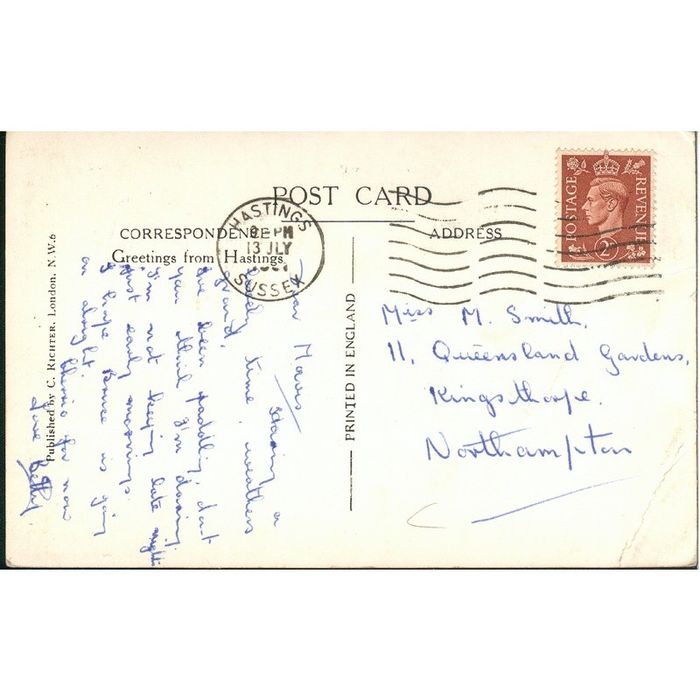 POST CARD
CORRESPONDENCE
ADDRESS
Greetings from Hastings
HASTINGS
PM
13 JLY
SUSSEX
POSTAGE
REVENUE
2D
Published by C. RICHTER, London, N.W.6
PRINTED IN ENGLAND
Miss M. Smith,
11, Queensland Gardens,
Kingsthorpe.
Northampton
Dear Mavis
Having a
lovely time, weathers
grand,
I've been paddling, dont
you think I'm daring,
I'm not keeping late nights
just early mornings.
I hope is going
on alright.
Cheerio for now
love Betty